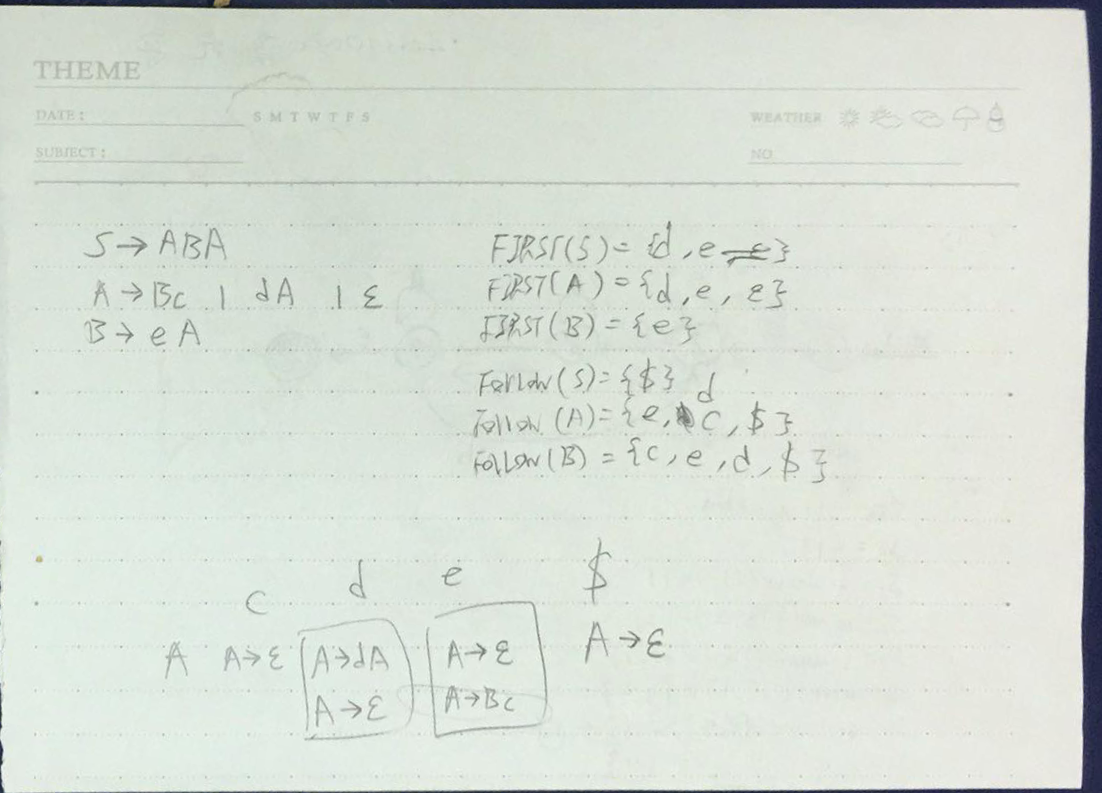 THEME
DATE: S M T W T F S WEATHER
SUBJECT: NO
S → ABA
A → Bc | dA | ε
B → e A
FIRST(S) = {d, e, ε}
FIRST(A) = {d, e, ε}
FIRST(B) = {e}
Follow(S) = {$}
d
Follow(A) = {e, c, $}
Follow(B) = {c, e, d, $}
c d e $
A A→ε A→dA A→ε A→ε
A→ε A→Bc